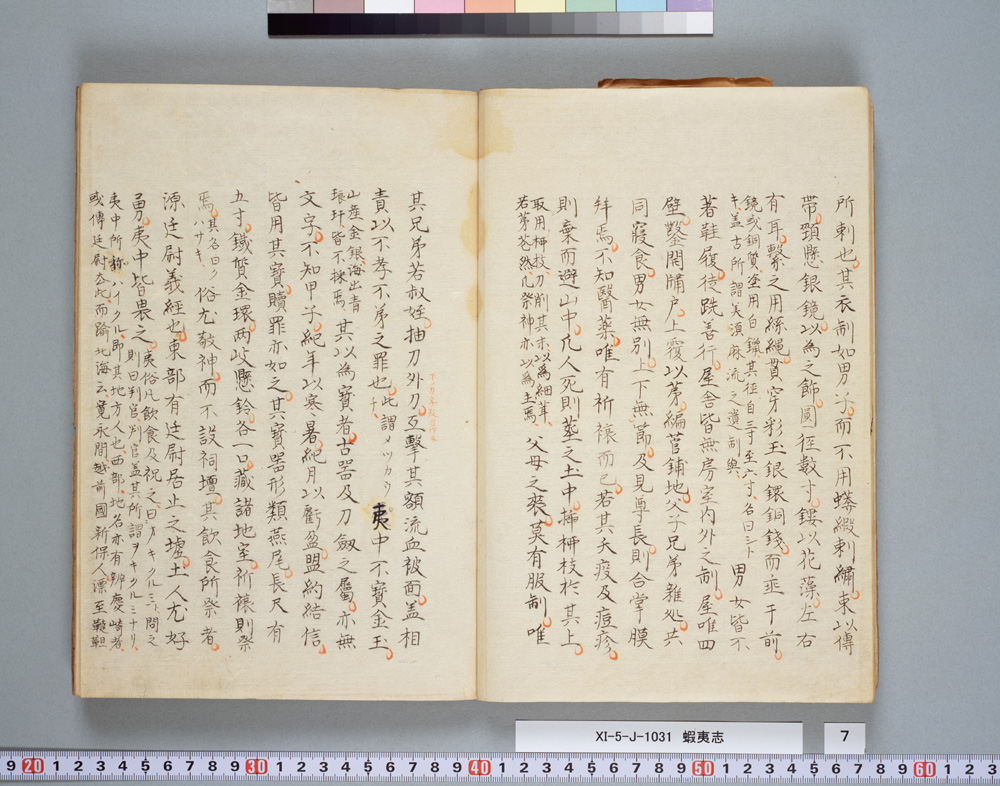 所刺也其衣制如男子而不用蟒緞刺繡束以博
帶頸懸銀鏡以為之飾圓徑數寸鏤以花藻左右
有耳繫之用絲繩貫穿彩玉銀鐶銅錢而垂于前
鏡或銅質塗用白鑞其徑自三寸至六寸名曰シト
キ蓋古所謂美須麻流之遺制與
男女皆不
著鞋履徒跣善行屋舍皆無房室內外之制屋唯四
壁鑿開牖戶上覆以茅編菅鋪地父子兄弟雜処共
同寢食男女無別上下無節及見尊長則合掌膜
拜焉不知醫藥唯有祈禳而已若其夭疫及痘疹
則棄而避山中凡人死則葬之土中插柳枝於其上
取用柳枝刀削其木以為細茸
若茅花然凡祭神亦以為主焉
父母之喪莫有服制唯
其兄弟若叔姪抽刀外刀互擊其額流血被面蓋相
責以不孝不弟之罪也
此謂メツカウチ
夷中不寶金玉
山產金銀海出青
琅玕皆不採焉
其以為寶者古器及刀劔之屬亦無
文字不知甲子紀年以寒暑紀月以虧盈盟約結信
皆用其寶贖罪亦如之其寶器形類燕尾長尺有
五寸鐵質金環兩岐懸鈴各一口藏諸地室祈禳則祭
焉
其名曰ク
ハサキ
俗尤敬神而不設祠壇其飲食所祭者
源廷尉義經也東部有廷尉居止之墟土人尤好
勇夷中皆畏之
夷俗凡飲食及祝之曰ヲキクルミ問之
則曰判官判官蓋其所謂ヲキクルミナリ
夷中所稱ハイクル即其地方人也西部地名亦有辨慶崎者
或傳廷尉去此而踰北海云寬永間越前國新保人漂至韃靼
XI-5-J-1031 蝦夷志
7